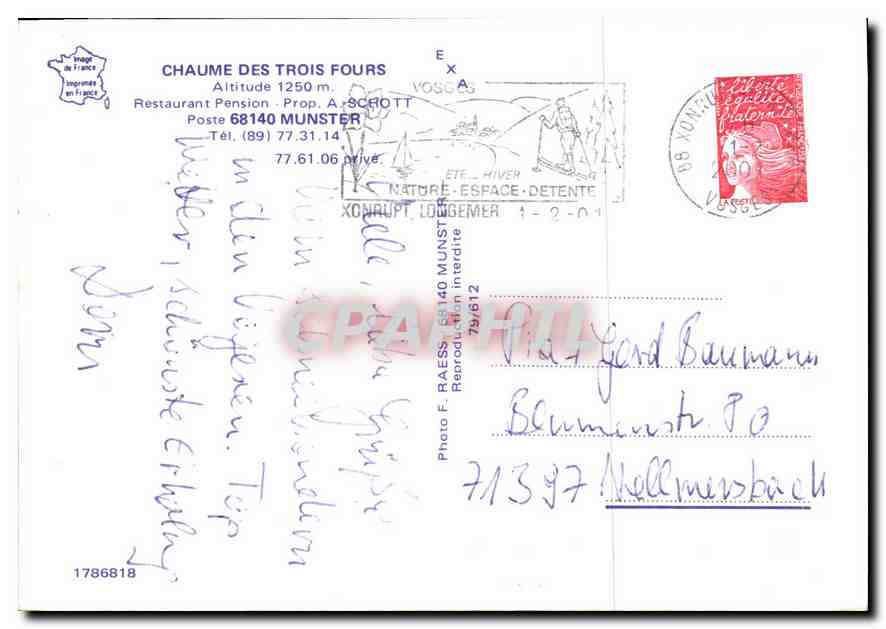 Image
de France
Imprimée
en France
CHAUME DES TROIS FOURS
Altitude 1250 m.
Restaurant Pension - Prop. A. SCHOTT
Poste 68140 MUNSTER
Tél. (89) 77.31.14
77.61.06 privé.
EXA
VOSGES
ETE... HIVER
NATURE - ESPACE - DETENTE
XONRUPT, LONGEMER 1-2-01
liberté
égalité
fraternité
LA POSTE
88 XONRUPT
VOSGES
liebe Grüße
vom
in den Vogesen. Top
Wetter, schönste Erholung
Photo F. RAESS - 68140 MUNSTER
Reproduction interdite
79/612
CPAPHIL
Pia + Gerd Baumann
Blumenstr. 80
71397 Nellmersbach
1786818